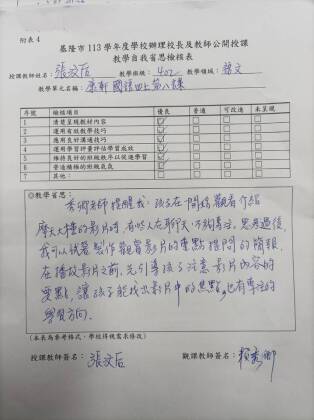 附表 4
基隆市 113 學年度學校辦理校長及教師公開授課
教學自我省思檢核表
授課教師姓名：張文 教學班級：402 教學領域：語文
教學單元名稱：康軒國語四上第八課
序號 檢核項目 優良 普通 可改進 未呈現
1 清楚呈現教材內容 ✓
2 運用有效教學技巧 ✓
3 應用良好溝通技巧 ✓
4 運用學習評量評估學習成效 ✓
5 維持良好的班級秩序以促進學習 ✓
6 營造積極的班級氣氛 ✓
7 其他：
◎教學省思：
秀卿老師提醒我：孩子在間 觀看介紹
摩天大樓的影片時，有些人在聊天，不夠專注。思考過後，
我可以試著製作觀賞影片的重點提問的簡報，
在播放影片之前，先引導孩子注意影片內容的
要點，讓孩子能找出影片中的焦點，也有專注的
學習方向。
(本表為參考格式，學校得視需求修改)
授課教師簽名：張文 觀課教師簽名：賴秀卿